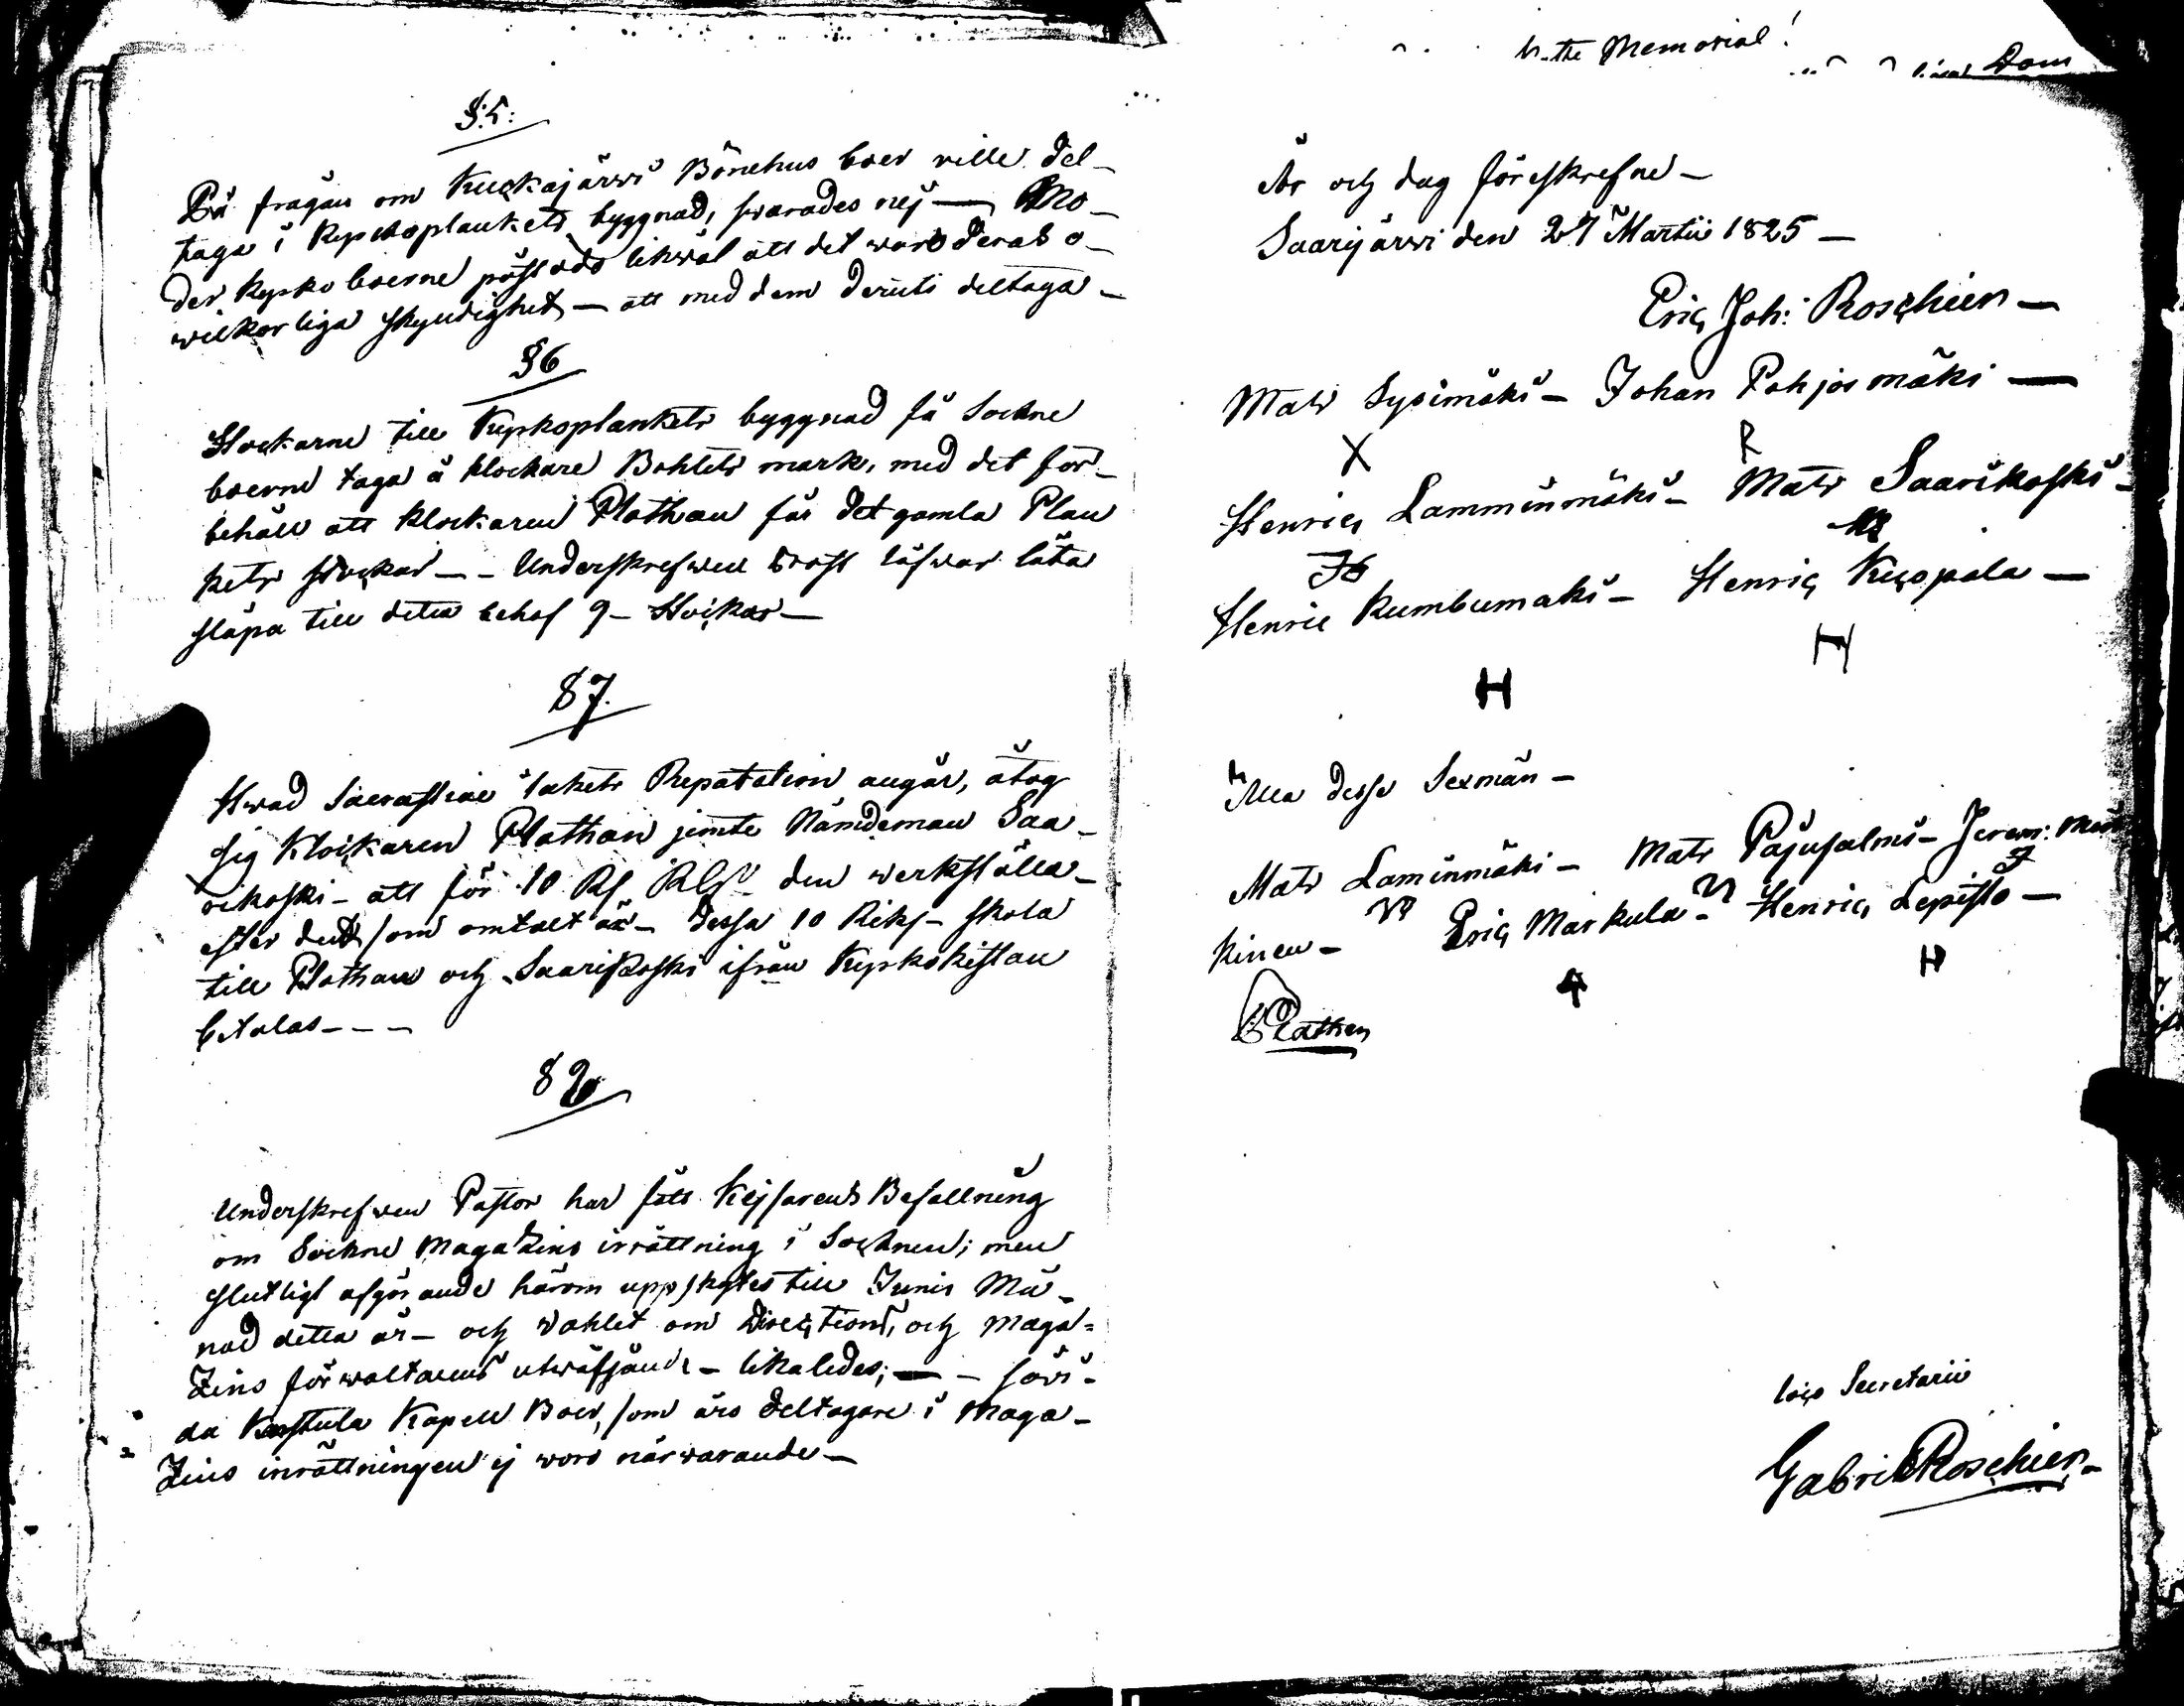 §:5:
På frågan om Kuckajärwi Bönehus boer wille del-
taga i Kyrckoplankets byggnad, swarades nej — Mo-
der kyrko boerne påstodo likwäl att det wore deras o-
wilkorliga skyldighet — att med dem deruti deltaga —
§6
Stockarne till Kyrkoplankets byggnad få Sockne
boerne taga å klockare Bohlets mark, med det för-
behåll att klockaren Plathan får det gamla Plan
kets stockar — Underskrefwen Prost låfwar låta
släpa till detta behof 9 - Stockar —
§7.
Hwad Sacrastiae takets Reparation angår, åtog
sig Klockaren Plathan jemte Nämdeman Saa-
rikoski - att för 10 R den werkställa -
efter det som omtalt är - dessa 10 Riks - skola
till Plathan och Saarikoski ifrån Kyrkokistan
betalas - - -
§ 8
Underskrefwen Pastor har fått Kejsarens Befallning
om Sockne Magazins inrättning i Socknen; men
slutligt afgörande härom uppskötes till Junii Må-
nad detta år - och wahlet om Directions, och Maga=
Zins förwaltarens utwäljande - likaledes; — - såvi-
da Karstula Kapell Boer, som äro deltagare i Maga-
Zins inrättningen ej woro närwarande —
Memorial!
Dom
År och dag föreskrefne —
Saarijärwi den 27 Martii 1825 —
Eric Joh: Roschier —
Mats Sysimäki — Johan Pohjosmäki —
X R
Henric Lamminmäki — Mats Saarikoski —
Henric Kumbumäki — Henric Kuoppala —
H H
Alla desse Sexmän —
Mats Laminmäki — Mats Pajusalmi — Jerem:
kinen — Eric Markula — Henric Lepistö —
H
Plathan
loco Secretarii
Gabriel Roschier.